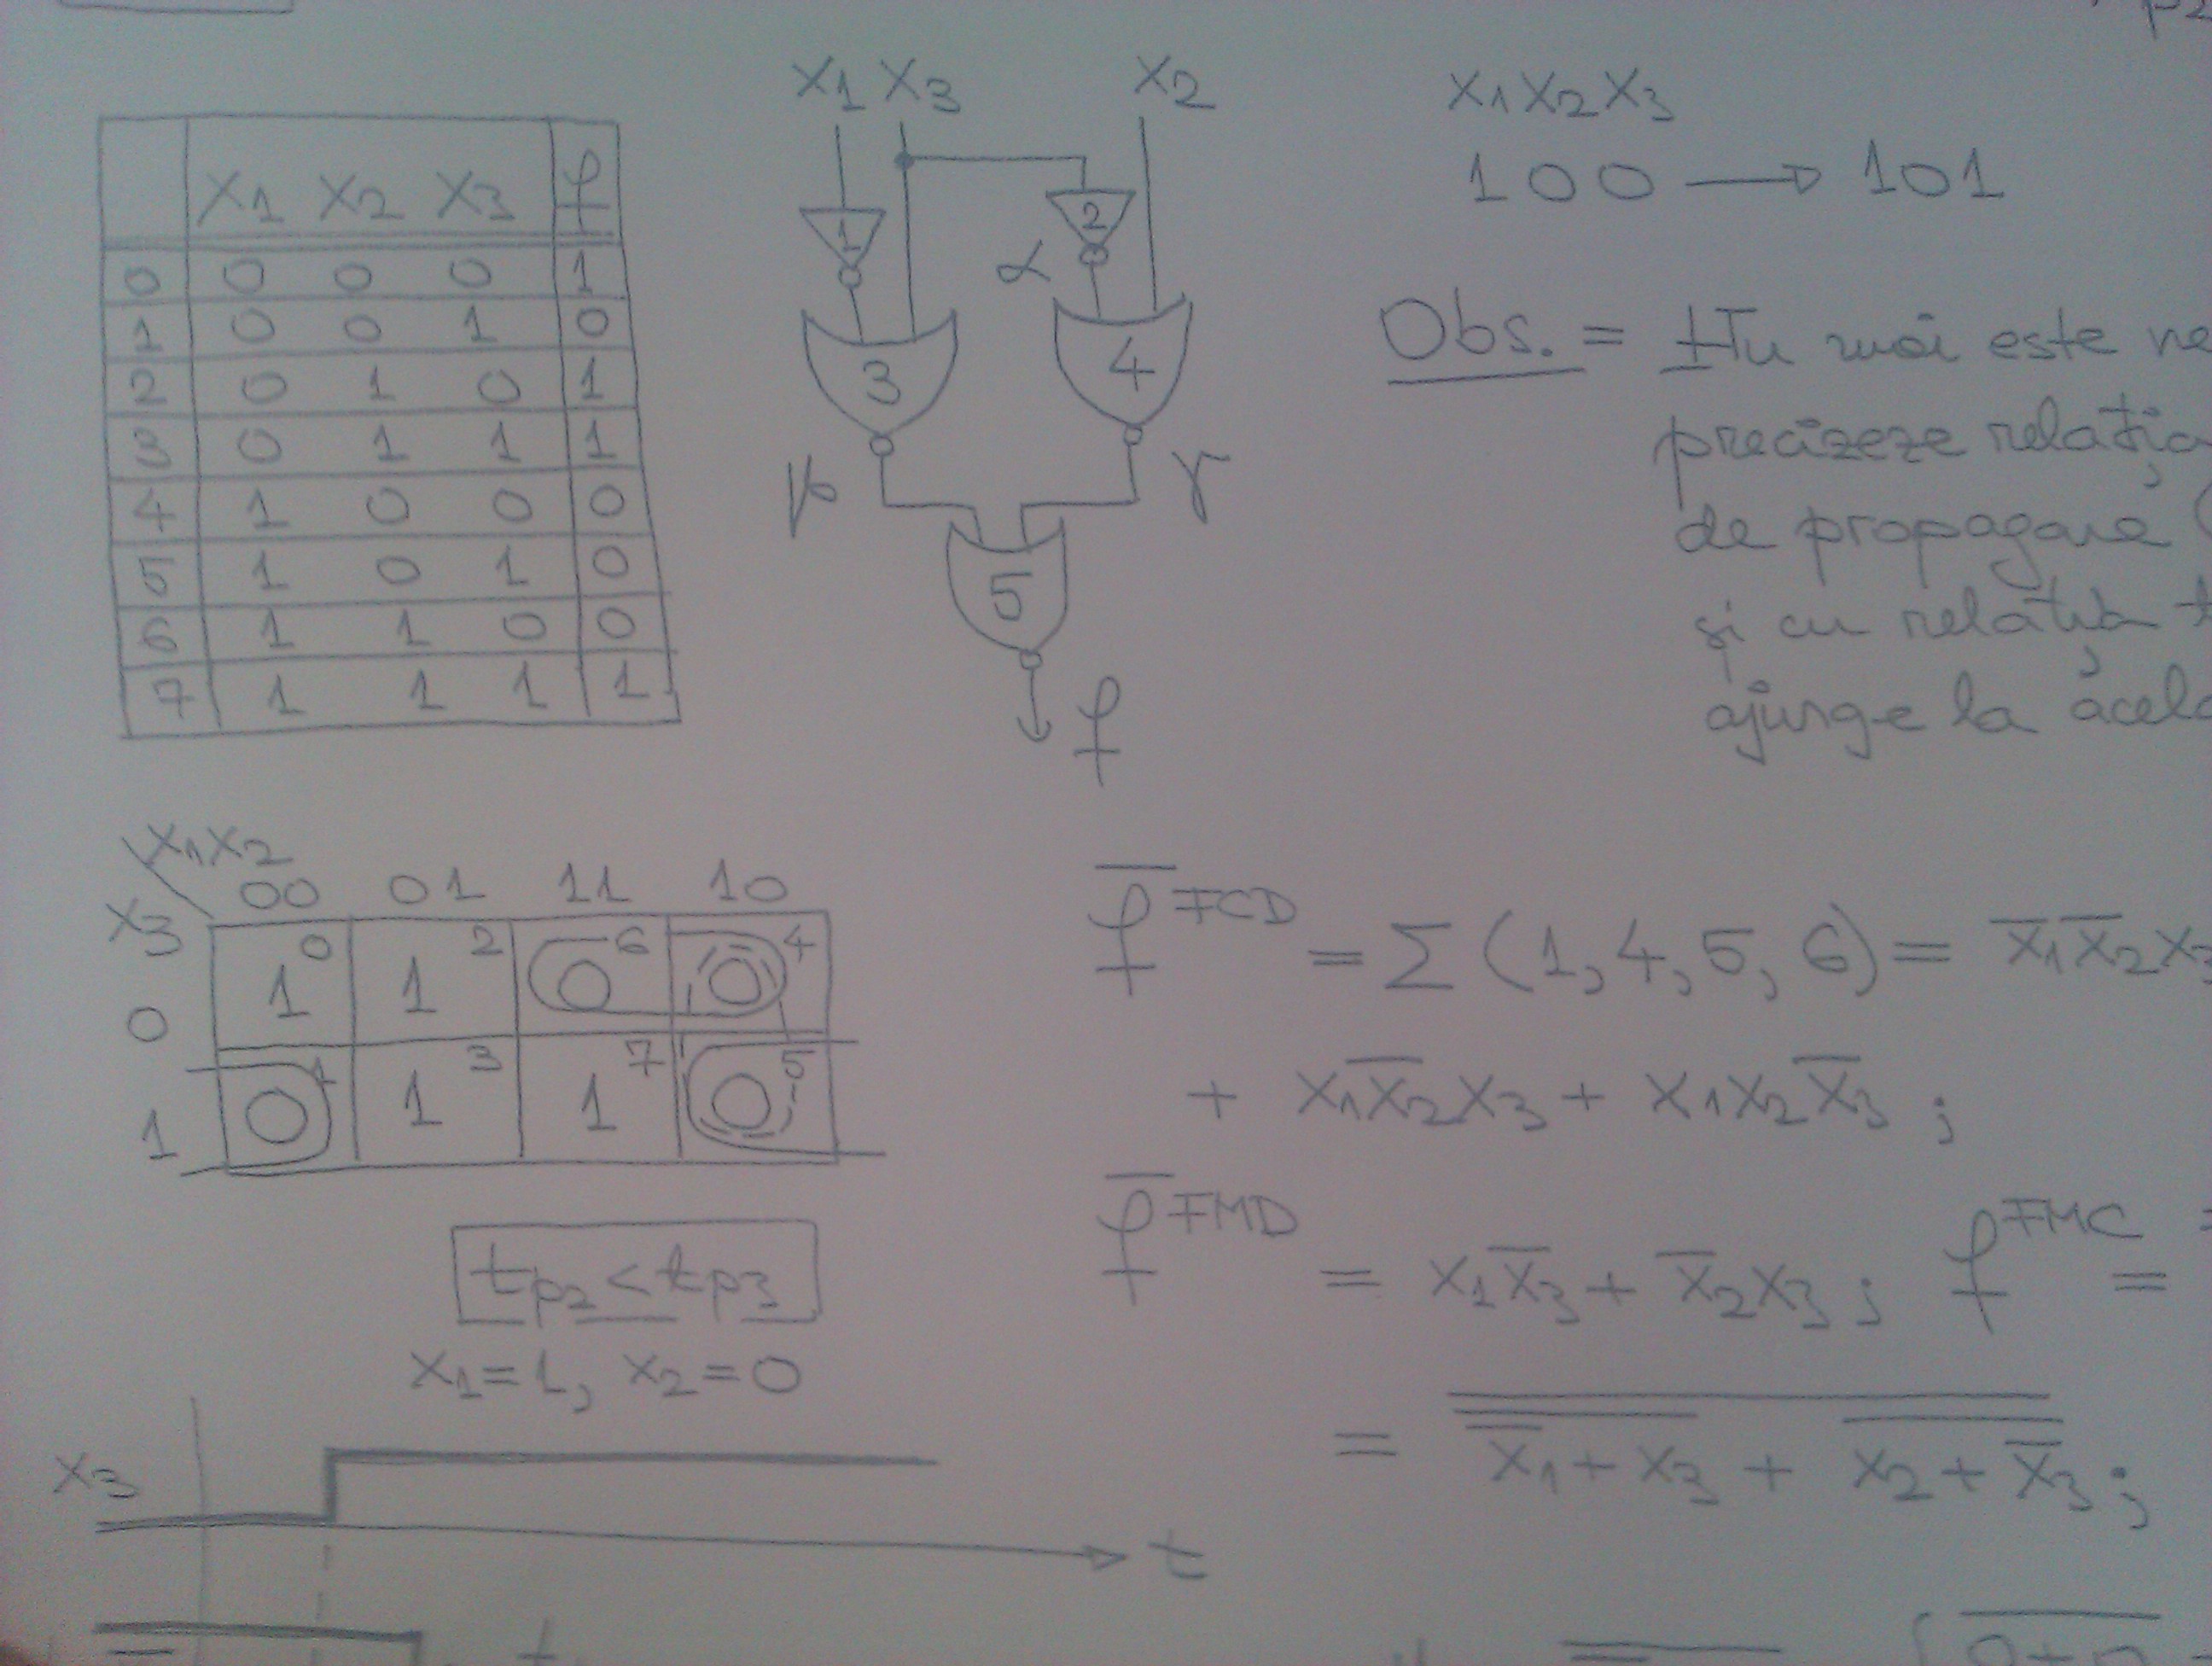 X1 X2 X3 f
0 0 0 0 1
1 0 0 1 0
2 0 1 0 1
3 0 1 1 1
4 1 0 0 0
5 1 0 1 0
6 1 1 0 0
7 1 1 1 1
X1 X3 X2
1 2
α
3 4
β γ
5
f
X1X2X3
100 → 101
Obs. = Nu mai este ne
precizeze relația
de propagare (
și cu relația t
ajunge la acela
X1X2
00 01 11 10
X3
0 1 0 1 2 0 6 0 4
1 0 1 1 3 1 7 0 5
f̅ FCD = Σ (1, 4, 5, 6) = x̅1x̅2x3
+ x1x̅2x3 + x1x2x̅3 ;
f̅ FMD = x1x̅3 + x̅2x3 ; f FMC =
= x̅1 + x3 + x2 + x̅3 ;
tp2 < tp3
X1 = 1, X2 = 0
X3
t